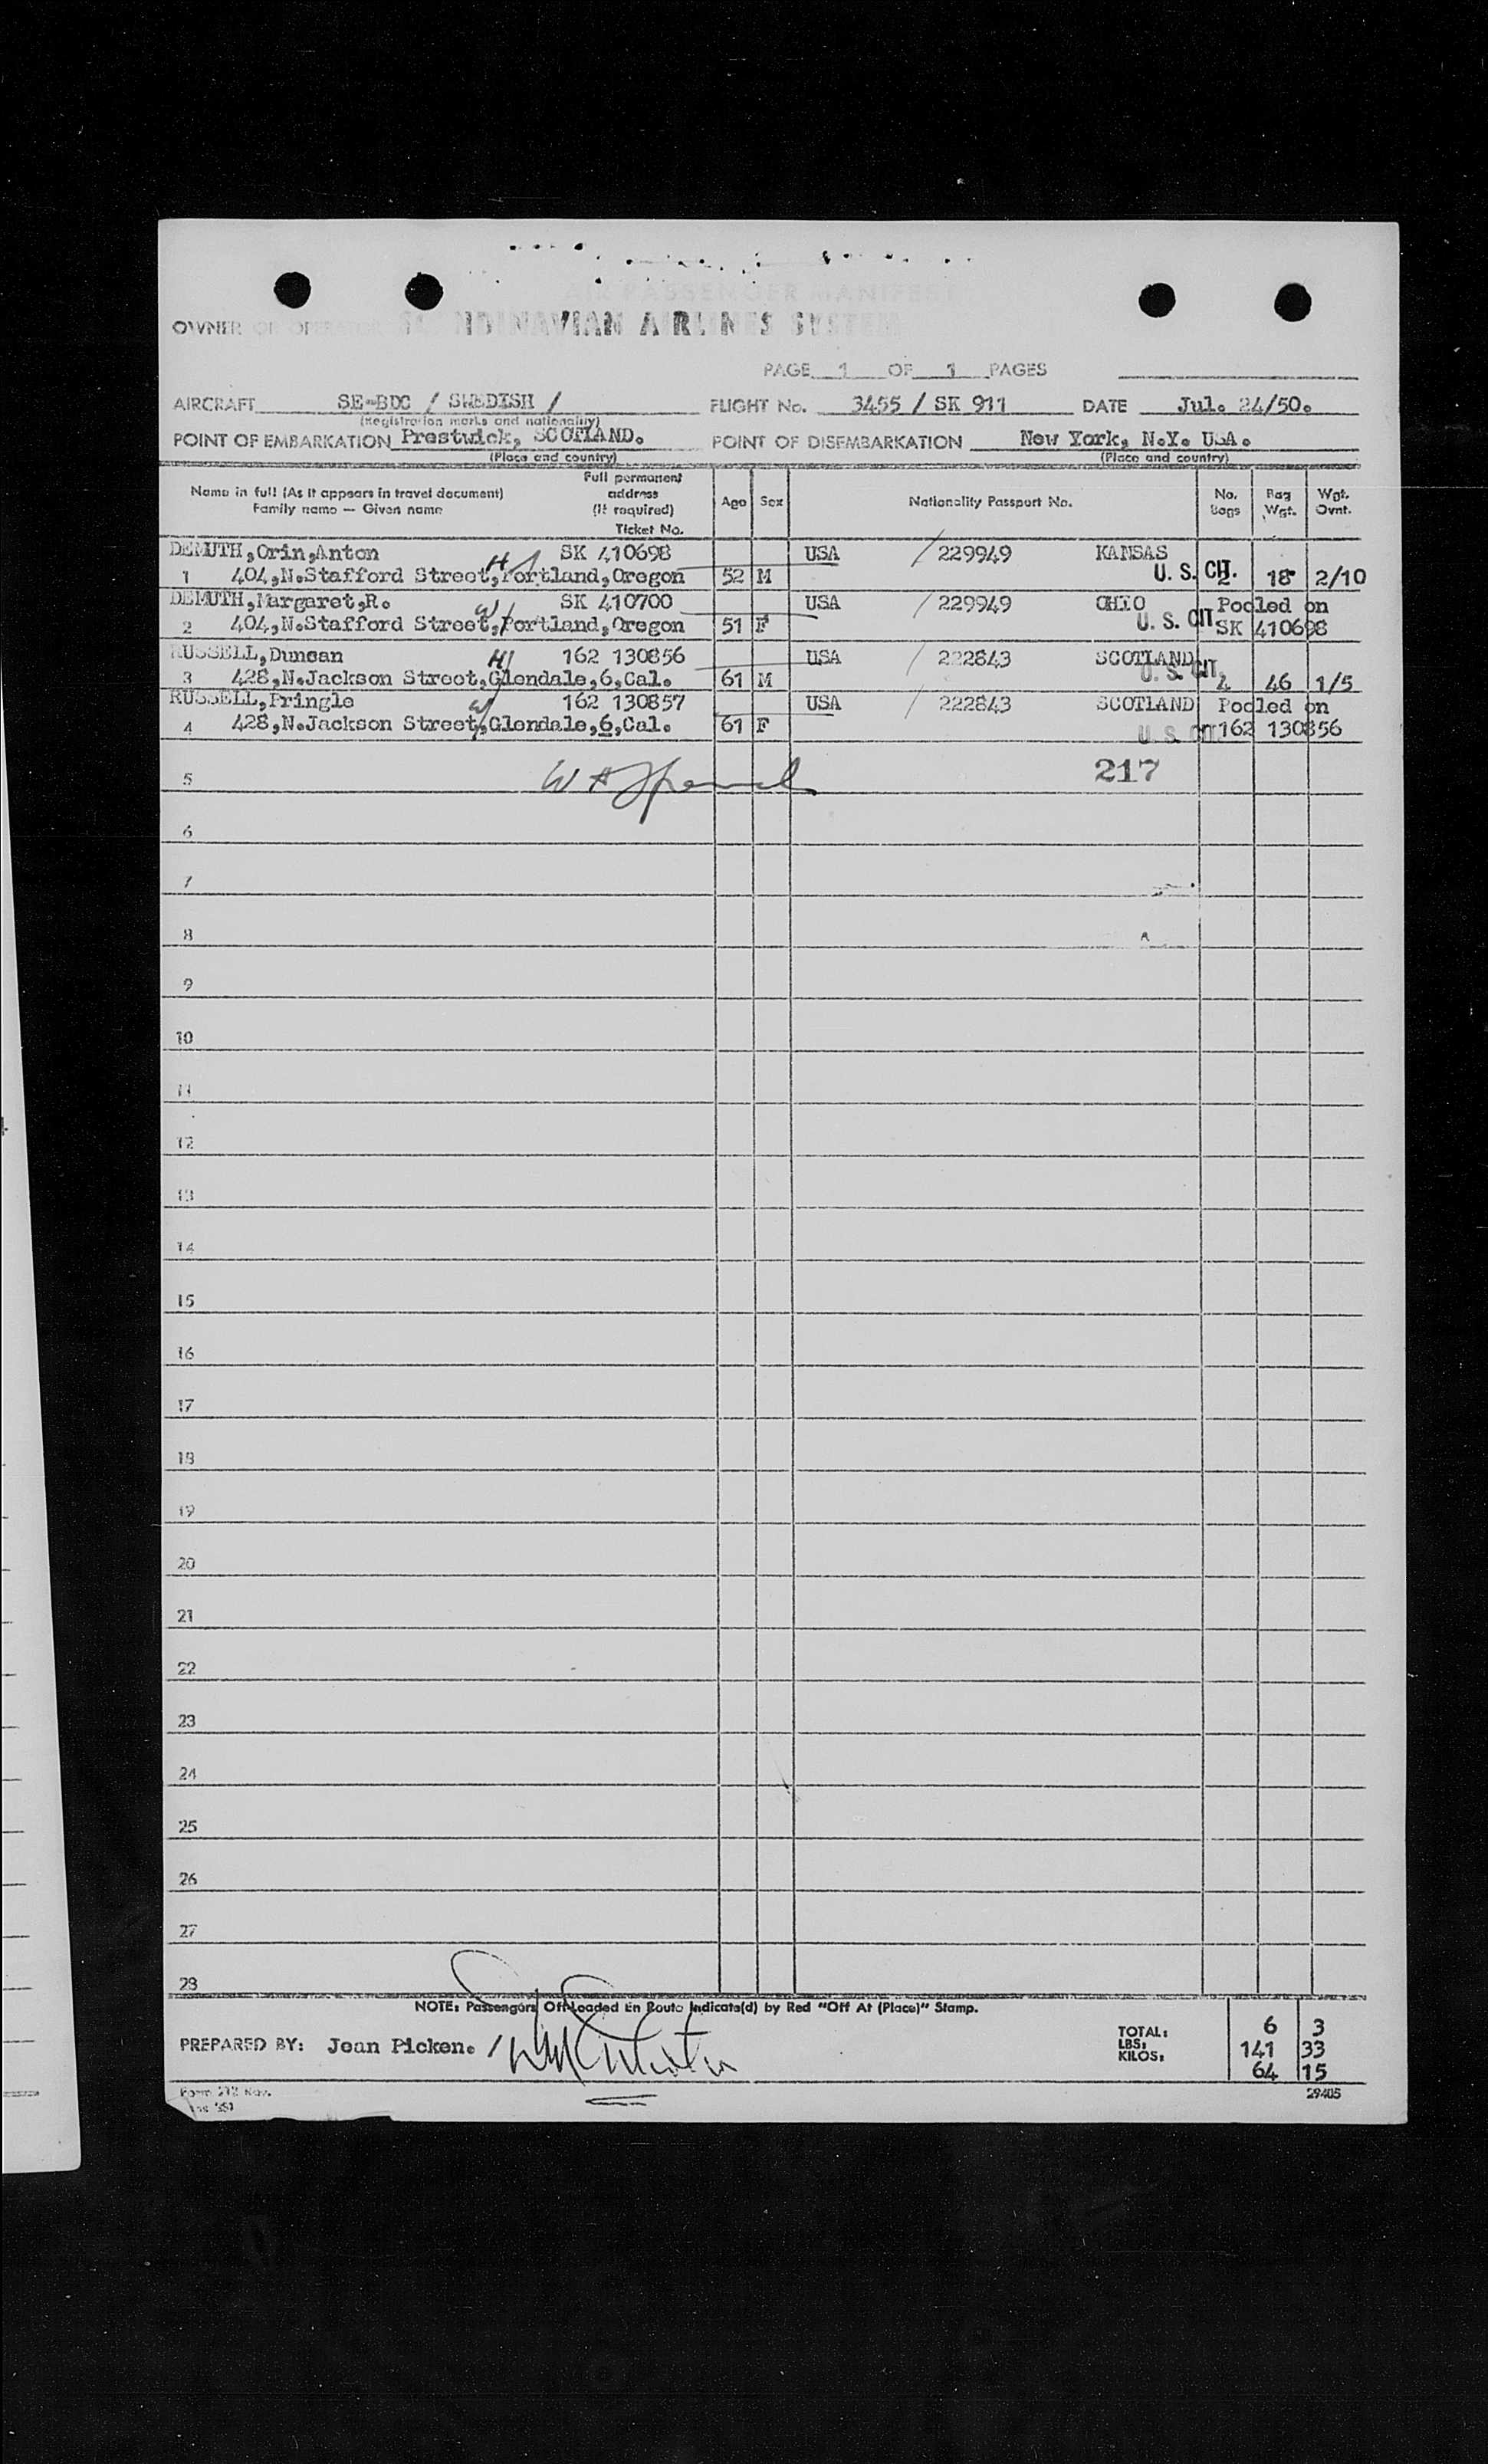 AIR PASSENGER MANIFEST
OWNER OR OPERATOR SCANDINAVIAN AIRLINES SYSTEM
PAGE 1 OF 1 PAGES
AIRCRAFT SE-BDC / SWEDISH / FLIGHT No. 3455 / SK 911 DATE Jul. 24/50.
(Registration marks and nationality)
POINT OF EMBARKATION Prestwick, SCOTLAND. POINT OF DISEMBARKATION New York, N.Y. USA.
(Place and country) (Place and country)
Name in full (As it appears in travel document) Family name — Given name Full permanent address (If required) Ticket No. Age Sex Nationality Passport No. No. Bags Bag Wgt. Wgt. Ovnt.
DEMUTH,Orin,Anton SK 410698 USA 229949 KANSAS
1 404,N.Stafford Street,Portland,Oregon 52 M U. S. CIT. 2 18 2/10
DEMUTH,Margaret,R. SK 410700 USA 229949 OHIO Pooled on
2 404,N.Stafford Street,Portland,Oregon 51 F U. S. CIT SK 410698
RUSSELL,Duncan H 162 130856 USA 222843 SCOTLAND
3 428,N.Jackson Street,Glendale,6,Cal. 61 M U. S. CIT. 4 46 1/5
RUSSELL,Pringle W 162 130857 USA 222843 SCOTLAND Pooled on
4 428,N.Jackson Street,Glendale,6,Cal. 61 F U. S. CIT. 162 130856
5 217
6
7
8
9
10
11
12
13
14
15
16
17
18
19
20
21
22
23
24
25
26
27
28
NOTE: Passengers Off-Loaded En Route Indicate(d) by Red "Off At (Place)" Stamp.
PREPARED BY: Jean Picken. /
TOTAL: 6 3
LBS: 141 33
KILOS: 64 15
29405